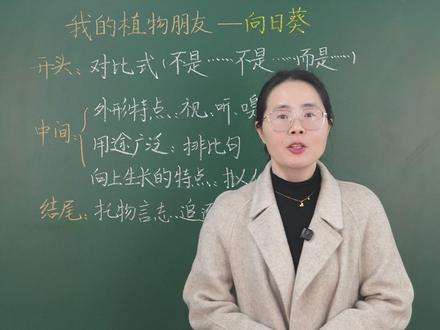 我的植物朋友——向日葵
开头：对比式（不是……不是……而是……）
中间：外形特点、视、听、嗅
用途广泛：排比句
向上生长的特点：拟人
结尾：托物言志、追